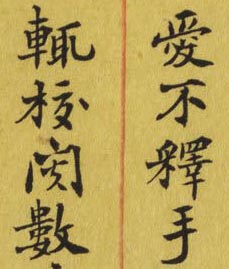 愛不釋手
輒校閱數